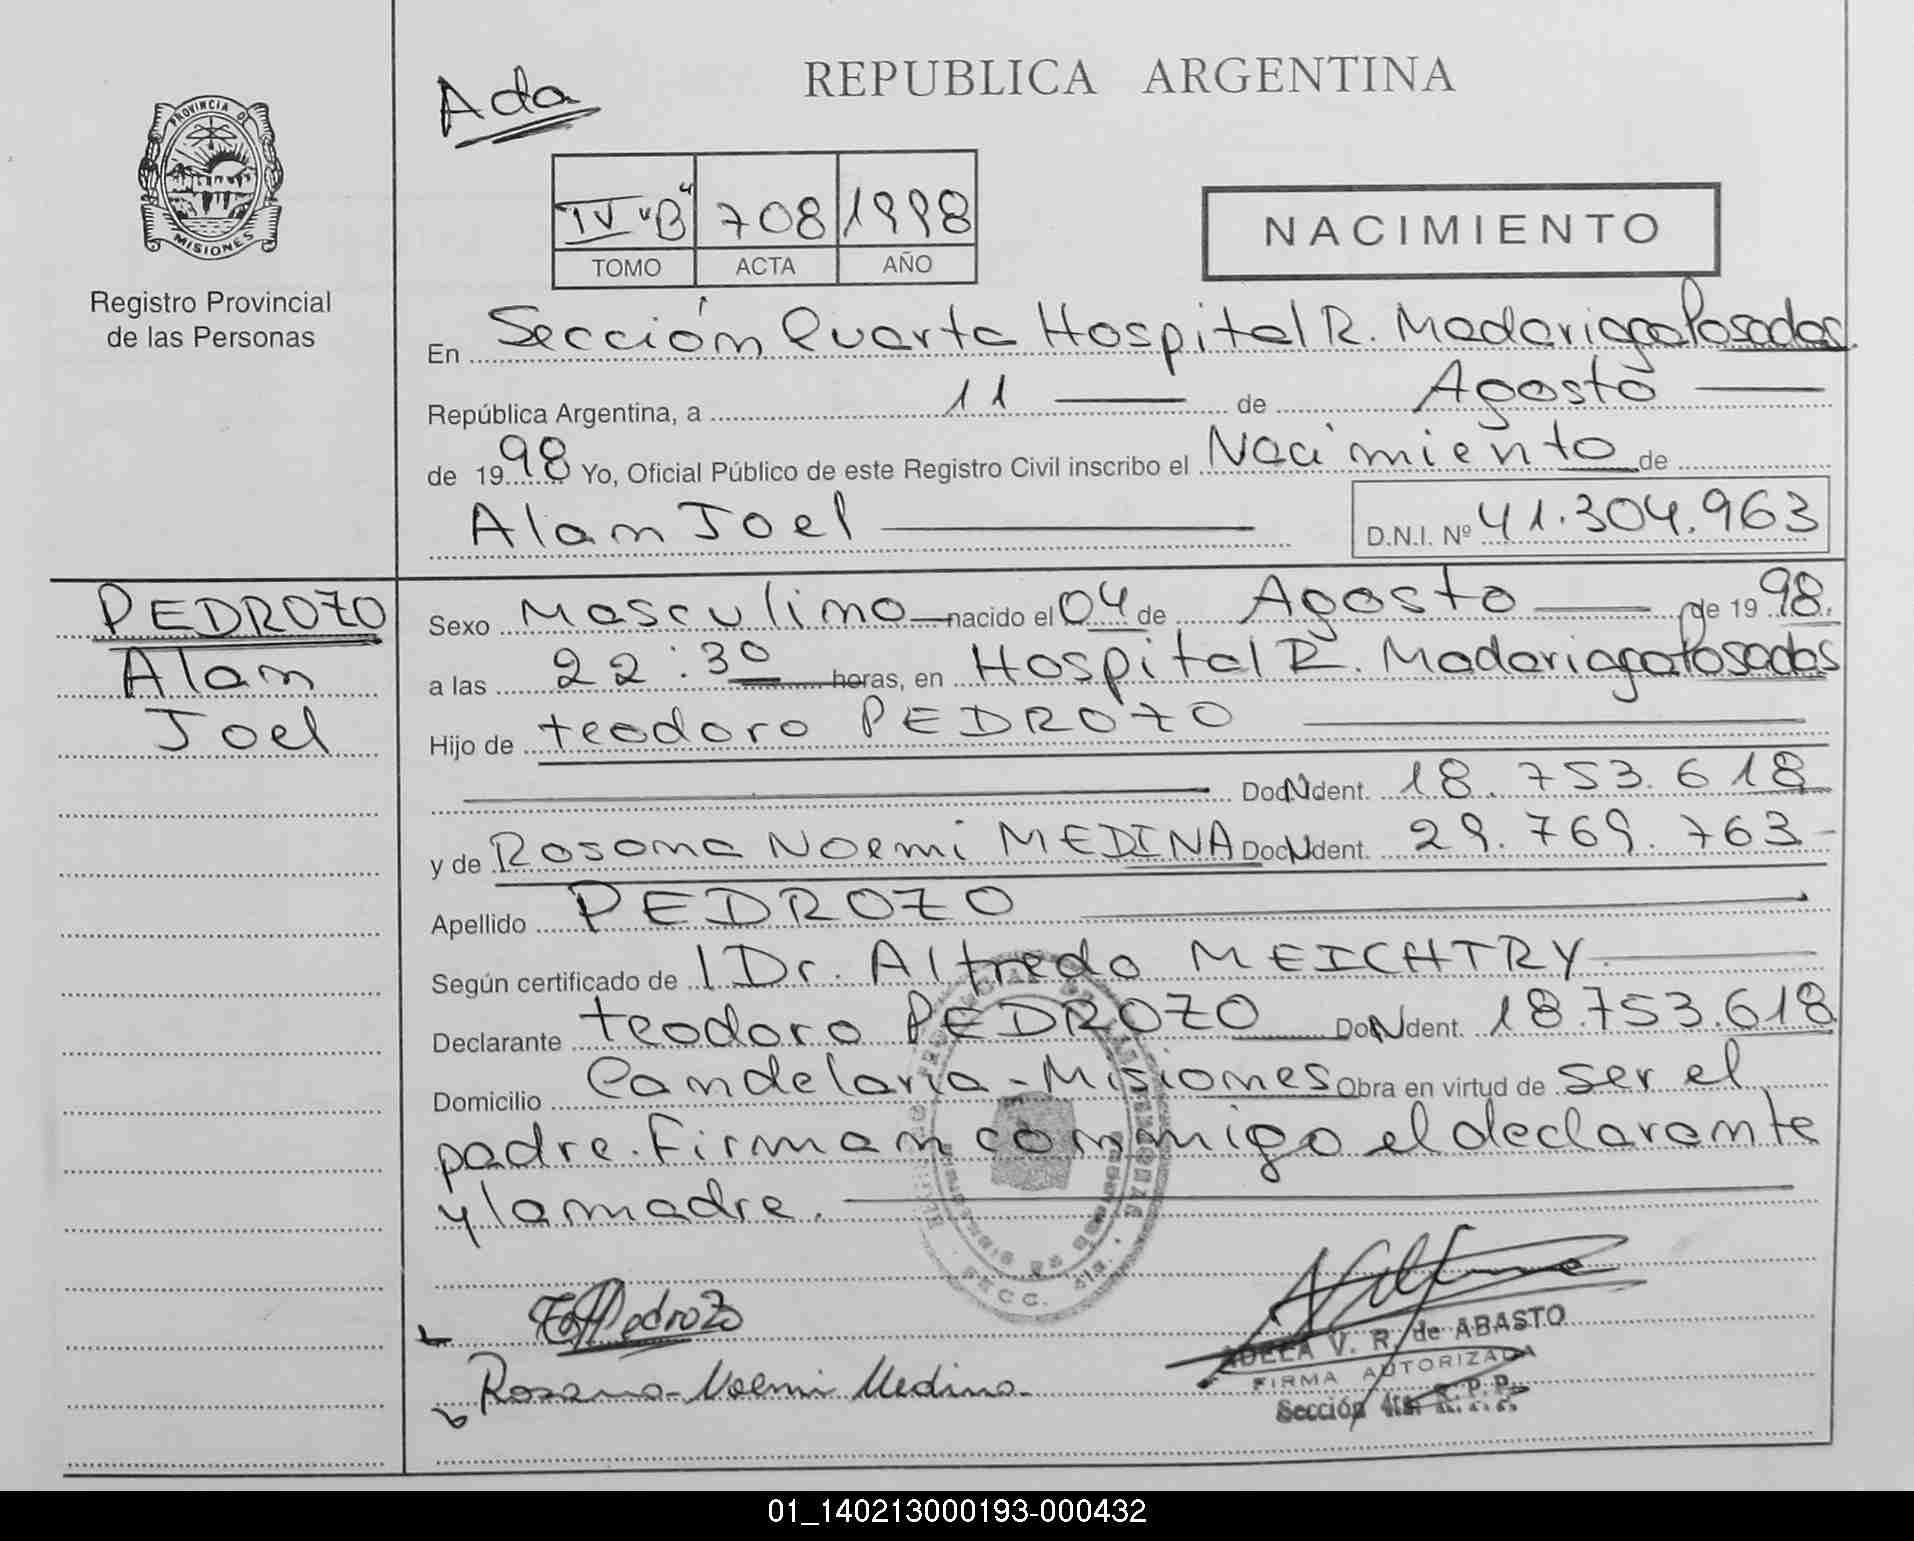 REPUBLICA ARGENTINA
Ada
PROVINCIA DE
MISIONES
Registro Provincial
de las Personas
IV "B" 708 1998
TOMO ACTA AÑO
NACIMIENTO
En Sección Cuarta Hospital R. Madariaga Posadas
República Argentina, a 11 de Agosto
de 1998 Yo, Oficial Público de este Registro Civil inscribo el Nacimiento de
Alan Joel D.N.I. Nº 41.304.963
PEDROZO
Alan
Joel
Sexo Masculino nacido el 04 de Agosto de 1998.
a las 22:30 horas, en Hospital R. Madariaga Posadas
Hijo de teodoro PEDROZO
Doc N Ident. 18.753.618
y de Rosana Noemi MEDINA Doc N Ident. 29.769.763
Apellido PEDROZO
Según certificado de l Dr. Alfredo MEICHTRY
Declarante teodoro PEDROZO Doc N Ident. 18.753.618
Domicilio Candelaria - Misiones Obra en virtud de ser el
padre. Firman conmigo el declarante
y la madre.
Pedrozo
Rosana Noemi Medina
ADELA V. R. de ABASTO
FIRMA AUTORIZADA
Sección 4ta. R.P.P.
01_140213000193-000432